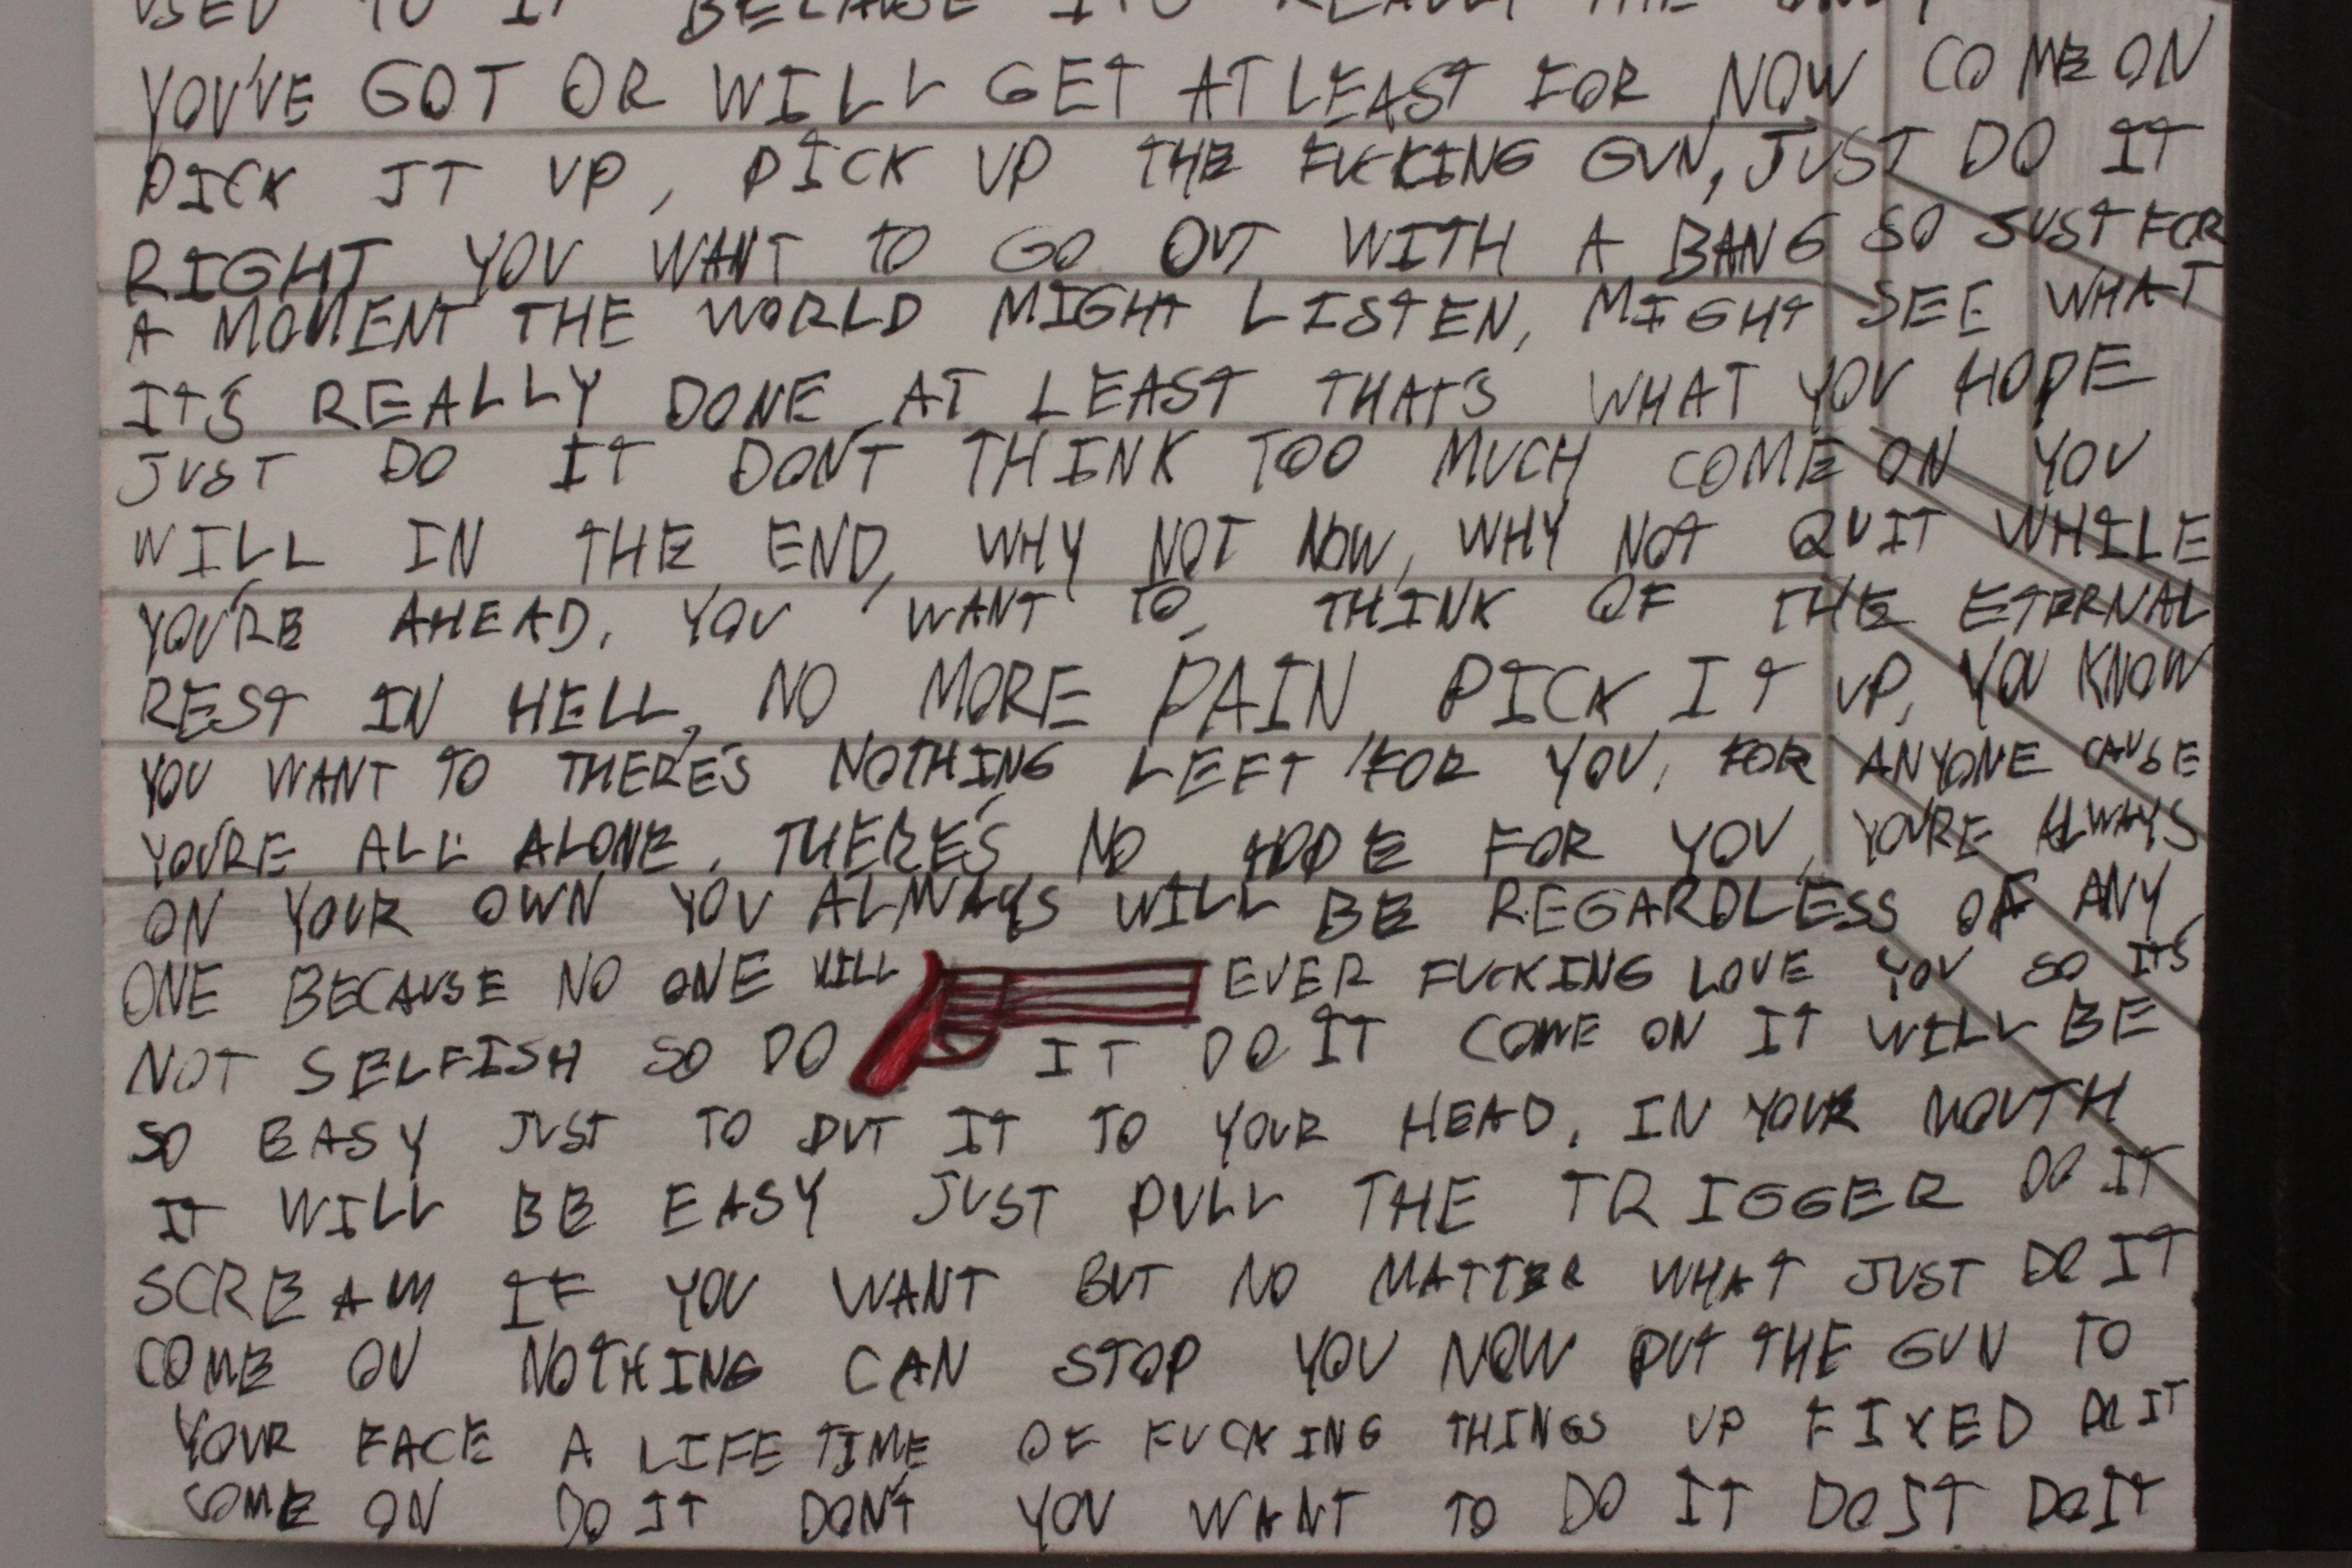 USED TO IT BECAUSE IT'S REALLY THE ONLY
YOU'VE GOT OR WILL GET AT LEAST FOR NOW COME ON
PICK IT UP, PICK UP THE FUCKING GUN, JUST DO IT
RIGHT YOU WANT TO GO OUT WITH A BANG SO JUST FOR
A MOMENT THE WORLD MIGHT LISTEN, MIGHT SEE WHAT
IT'S REALLY DONE AT LEAST THAT'S WHAT YOU HOPE
JUST DO IT DON'T THINK TOO MUCH COME ON YOU
WILL IN THE END, WHY NOT NOW, WHY NOT QUIT WHILE
YOU'RE AHEAD, YOU WANT TO, THINK OF THE ETERNAL
REST IN HELL, NO MORE PAIN PICK IT UP, YOU KNOW
YOU WANT TO THERE'S NOTHING LEFT FOR YOU, FOR ANYONE CAUSE
YOU'RE ALL ALONE, THERE'S NO HOPE FOR YOU, YOU'RE ALWAYS
ON YOUR OWN YOU ALWAYS WILL BE REGARDLESS OF ANY
ONE BECAUSE NO ONE WILL EVER FUCKING LOVE YOU SO IT'S
NOT SELFISH SO DO IT DO IT COME ON IT WILL BE
SO EASY JUST TO PUT IT TO YOUR HEAD, IN YOUR MOUTH
IT WILL BE EASY JUST PULL THE TRIGGER DO IT
SCREAM IF YOU WANT BUT NO MATTER WHAT JUST DO IT
COME ON NOTHING CAN STOP YOU NOW PUT THE GUN TO
YOUR FACE A LIFE TIME OF FUCKING THINGS UP FIXED DO IT
COME ON DO IT DON'T YOU WANT TO DO IT DO IT DO IT